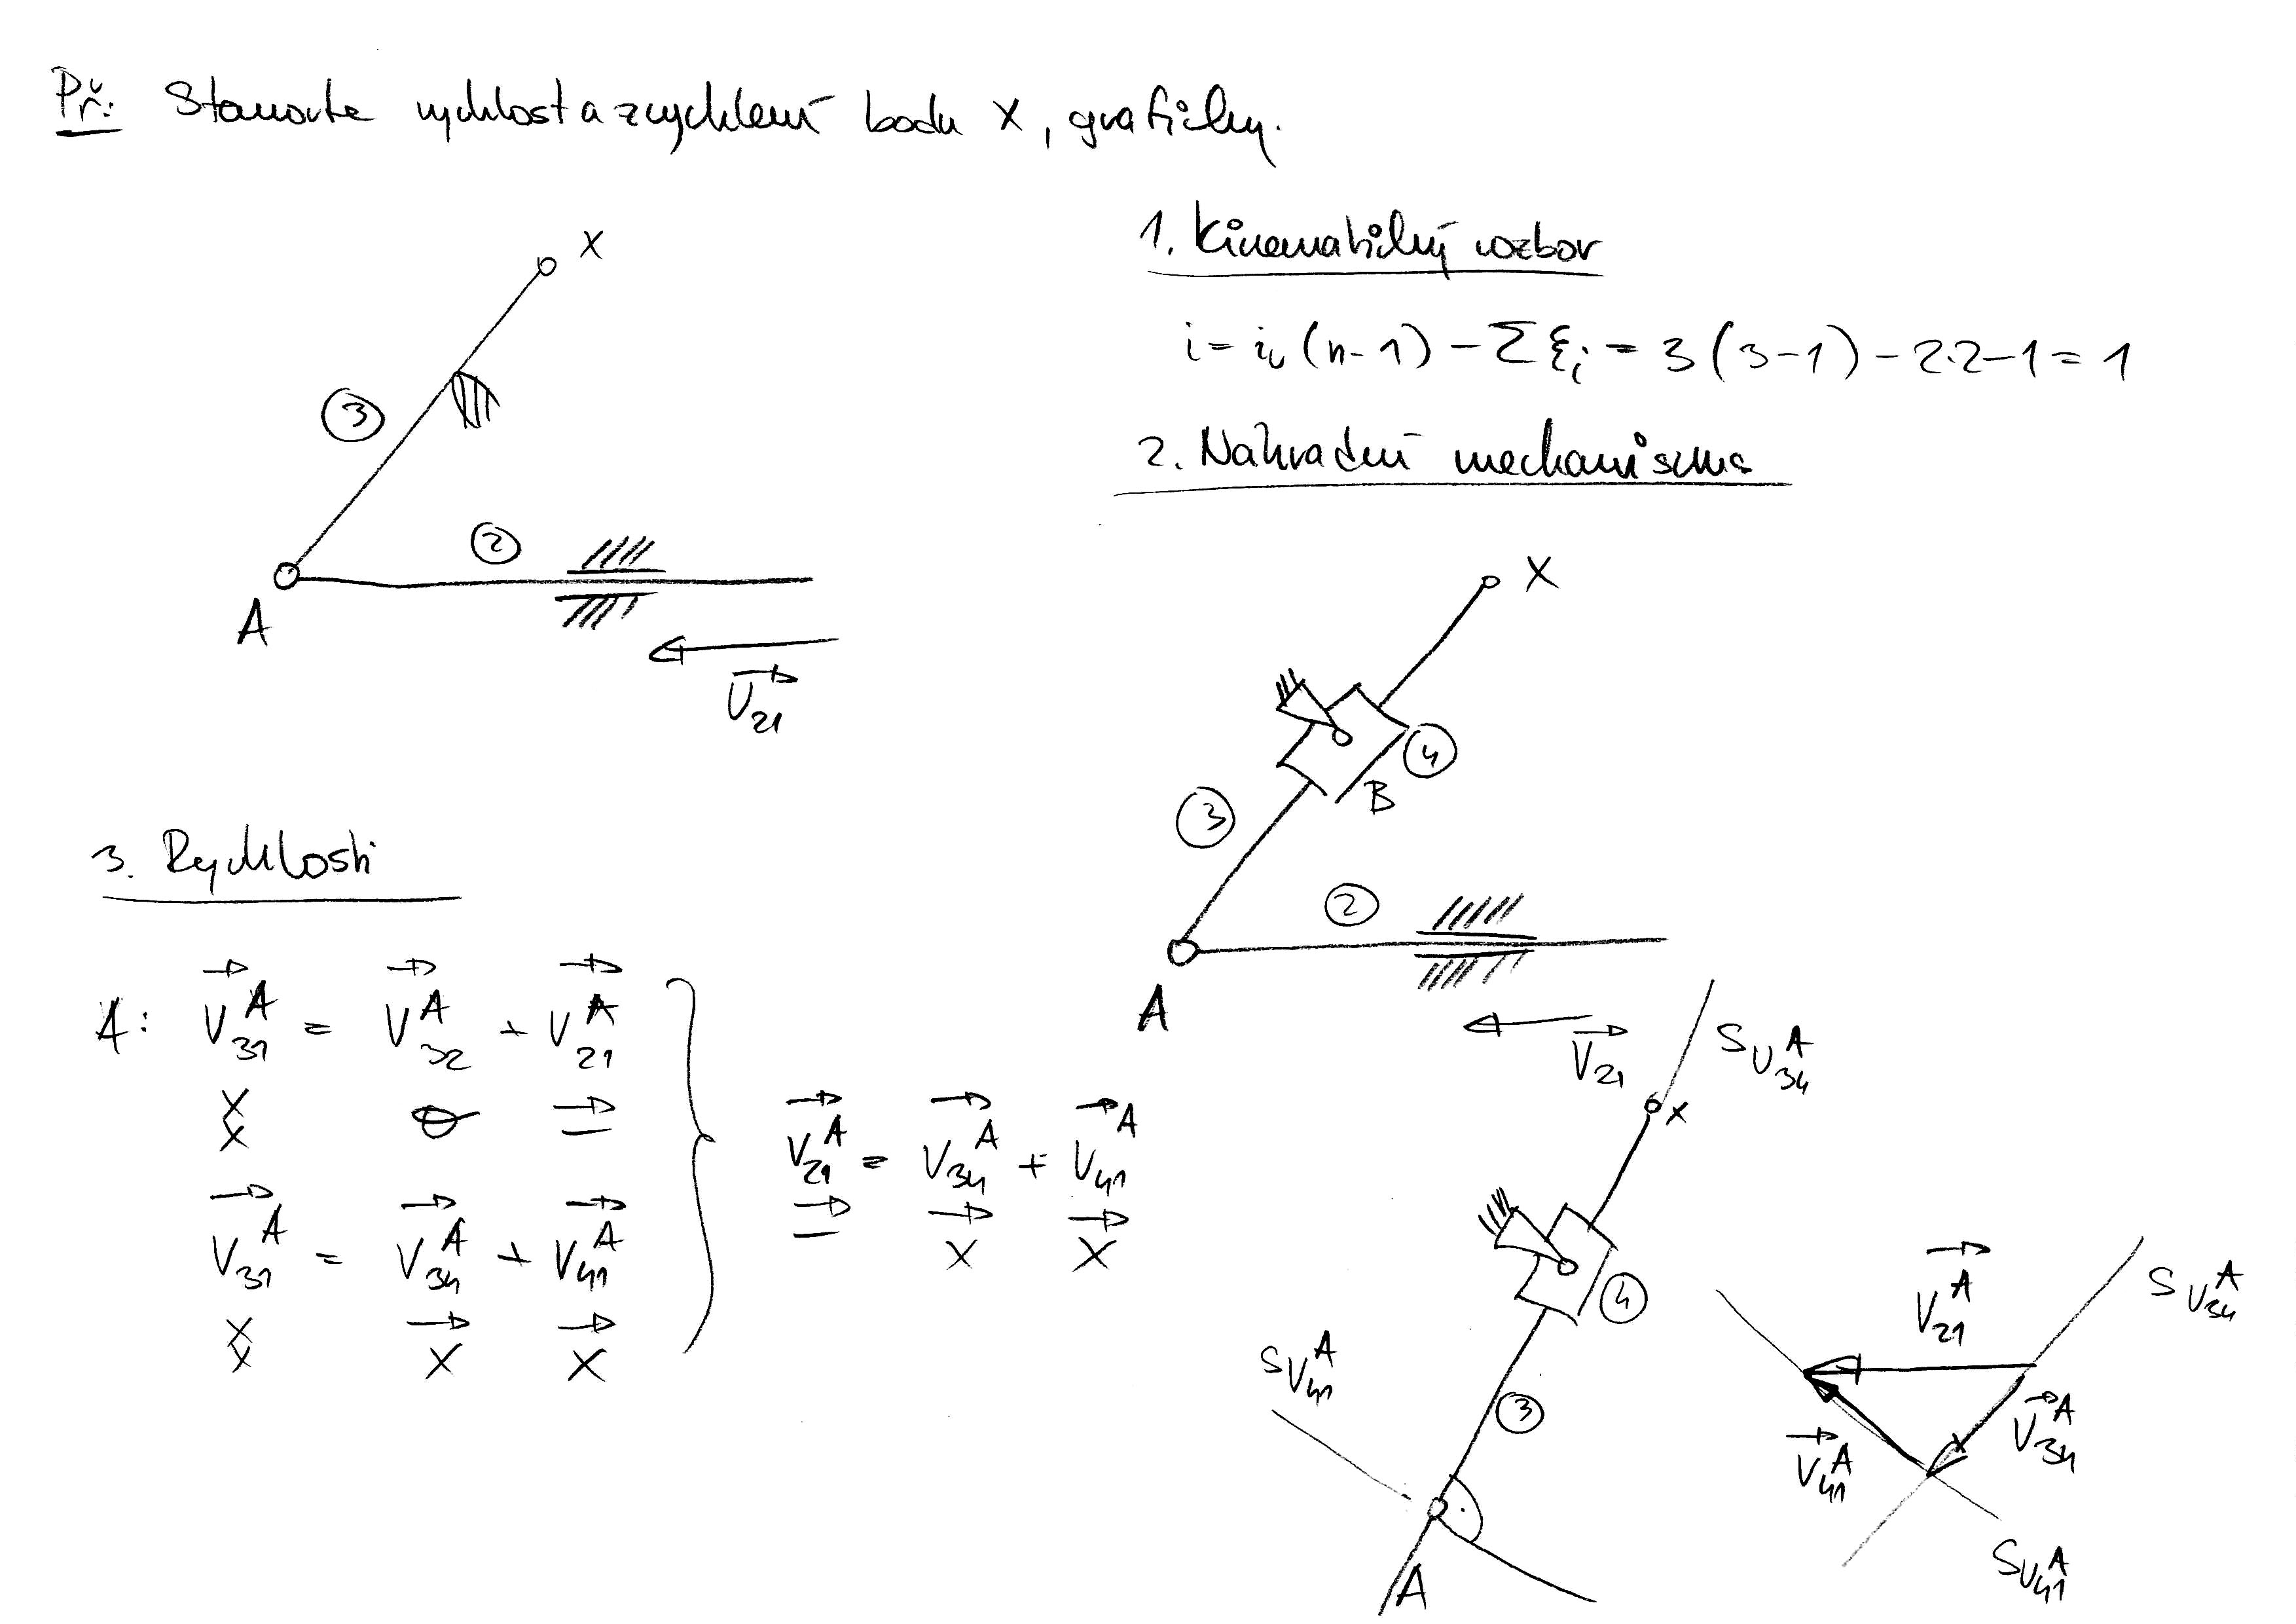 Př: Stanovte rychlost a zrychlení bodu X, graficky.
X
3
2
A
V21
1. Kinematický rozbor
i = iv (n-1) - Σ ξi = 3 (3-1) - 2·2 - 1 = 1
2. Náhradní mechanismus
X
4
B
3
2
A
V21
3. Rychlosti
A: V31^A = V32^A + V21^A
V31^A = V34^A + V41^A
V21^A = V34^A + V41^A
S V34^A
X
4
S V41^A
3
A
V21^A
S V34^A
V34^A
V41^A
S V41^A